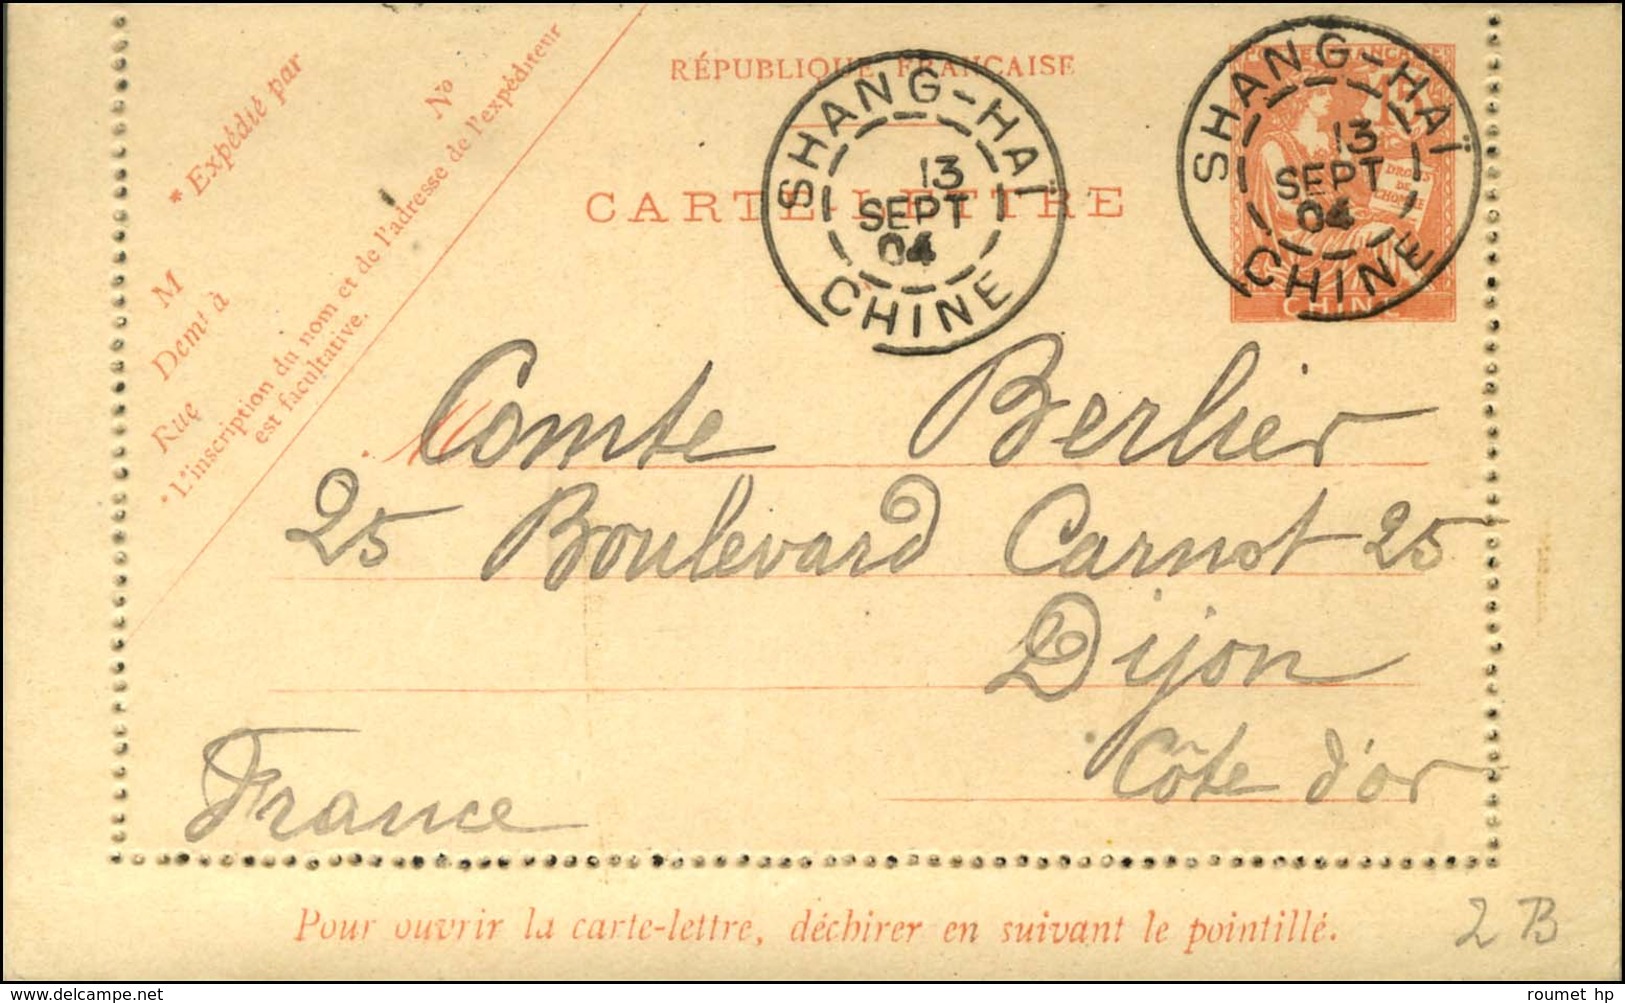 RÉPUBLIQUE FRANÇAISE
CARTE-LETTRE
* Expédié par
M
Demt à
Rue
No
* L'inscription du nom et de l'adresse de l'expéditeur
est facultative.
SHANG-HAÏ
13
SEPT
04
CHINE
POSTE FRANÇAISE
15
DROITS
DE
L'HOMME
CHINE
SHANG-HAÏ
13
SEPT
04
CHINE
Comte Berlier
25 Boulevard Carnot 25
Dijon
Côte d'or
France
Pour ouvrir la carte-lettre, déchirer en suivant le pointillé.
2 B
roumet hp